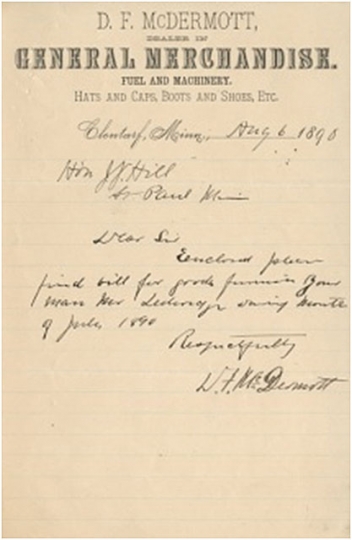 D. F. McDERMOTT,
DEALER IN
GENERAL MERCHANDISE.
FUEL AND MACHINERY.
HATS AND CAPS, BOOTS AND SHOES, ETC.
Clontarf, Minn., Aug 6 1890
Hon J. J. Hill
St Paul Min
Dear Sir
Enclosed please
find bill for goods furnish your
man Mr during Month
of July 1890
Respectfully
D. F. McDermott